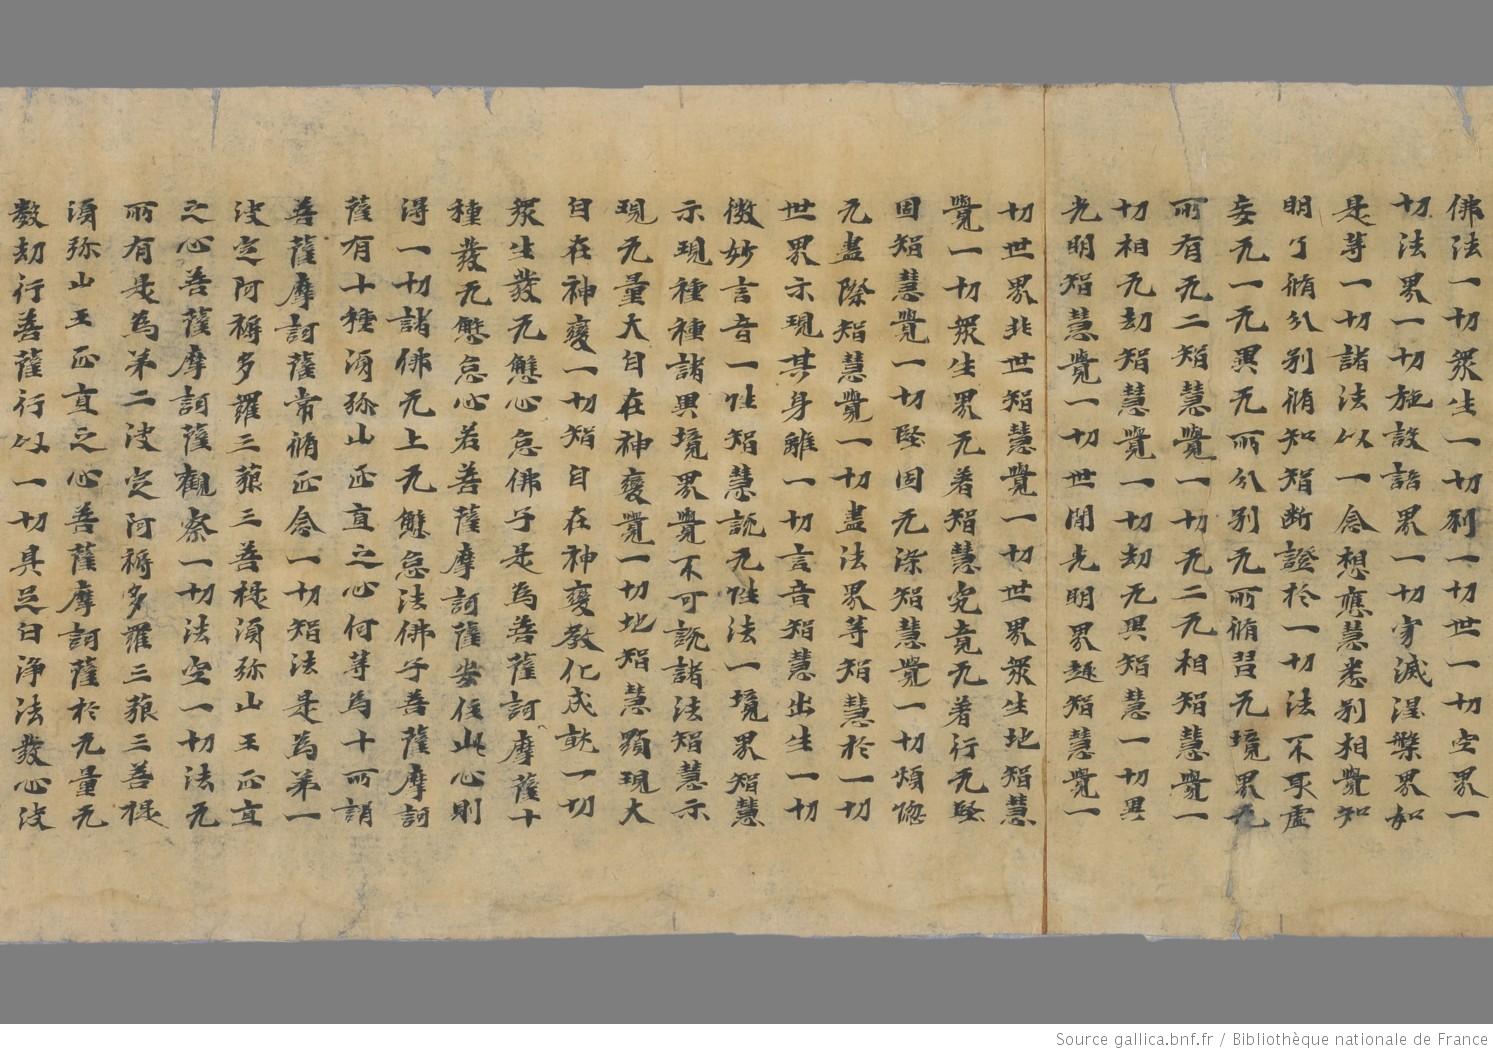 佛法一切衆生一切刹一切世一切空界一
切法界一切施設語界一切寂滅涅槃界如
是等一切諸法以一念想應慧悉別相覺知
明了脩分别脩知智断證於一切法不取虚
妄无一无異无所分别无所脩習无境界无
所有无二智慧覺一切无二无相智慧覺一
切相无劫智慧覺一切劫无異智慧一切異
光明智慧覺一切世間光明界趣智慧覺一
切世界非世智慧覺一切世界衆生地智慧
覺一切衆生界无著智慧究竟无著行无堅
固智慧覺一切堅固无染智慧覺一切煩惱
无盡際智慧覺一切盡法界等智慧於一切
世界示現其身離一切言音智慧出生一切
微妙言音一性智慧說无性法一境界智慧
示現種種諸異境界覺不可説諸法智慧示
現无量大自在神變覺一切地智慧顯現大
自在神變一切智自在神變教化成就一切
衆生發无懈心怠佛子是為菩薩訶摩薩十
種發无懈怠心若菩薩摩訶薩安住此心則
得一切諸佛无上无懈怠法佛子菩薩摩訶
薩有十種須弥山正直之心何等為十所謂
菩薩摩訶薩常脩正念一切智法是為第一
决定阿耨多羅三藐三菩提須弥山王正直
之心菩薩摩訶薩觀察一切法空一切法无
所有是為第二决定阿耨多羅三藐三菩提
須弥山王正直之心菩薩摩訶薩於无量无
數劫行菩薩行以一切具足白淨法發心决
Source gallica.bnf.fr / Bibliothèque nationale de France